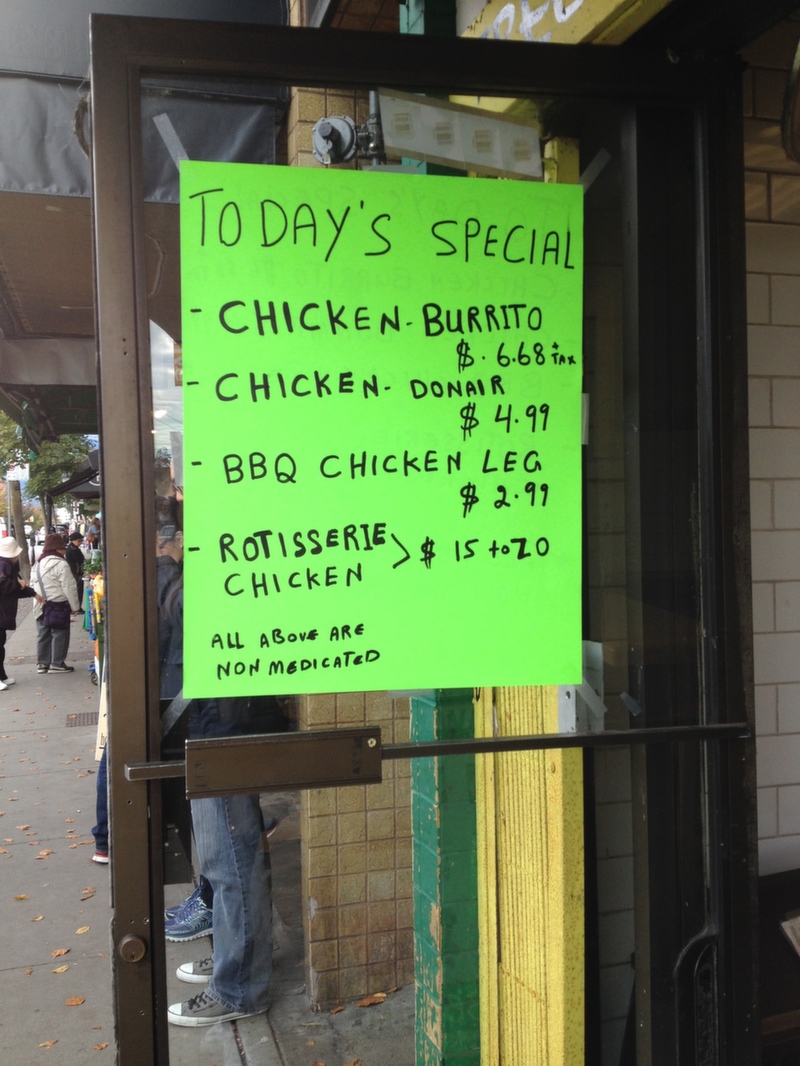 TODAY'S SPECIAL
- CHICKEN-BURRITO
$. 6.68 + TAX
- CHICKEN- DONAIR
$ 4.99
- BBQ CHICKEN LEG
$ 2.99
- ROTISSERIE
CHICKEN > $ 15 to 20
ALL ABOVE ARE
NON MEDICATED